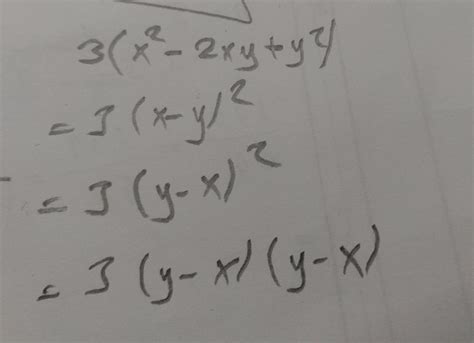 3(x² - 2xy + y²)
= 3 (x-y)²
= 3 (y-x)²
= 3 (y-x) (y-x)